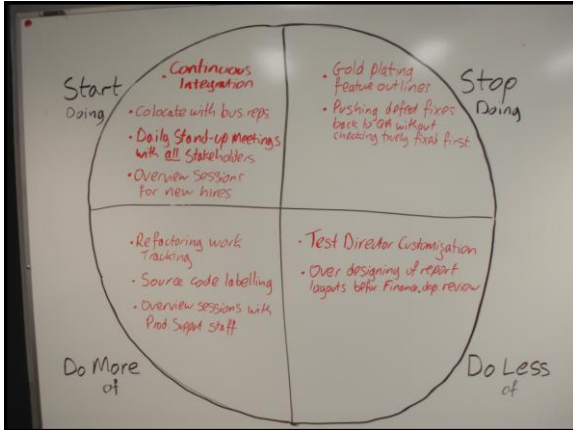 Start
Doing
• Continuous
Integration
• Colocate with bus. reps
• Daily Stand-up Meetings
with all Stakeholders
• Overview Sessions
for new hires
Stop
Doing
• Gold plating
feature outlines
• Pushing defect fixes
back to QA without
checking fixed first
• Refactoring work
Tracking
• Source code labelling
• Overview sessions with
Prod. Support staff
Do More
of
• Test Director Customization
• Over designing of report
layouts Finance. dep. review
Do Less
of